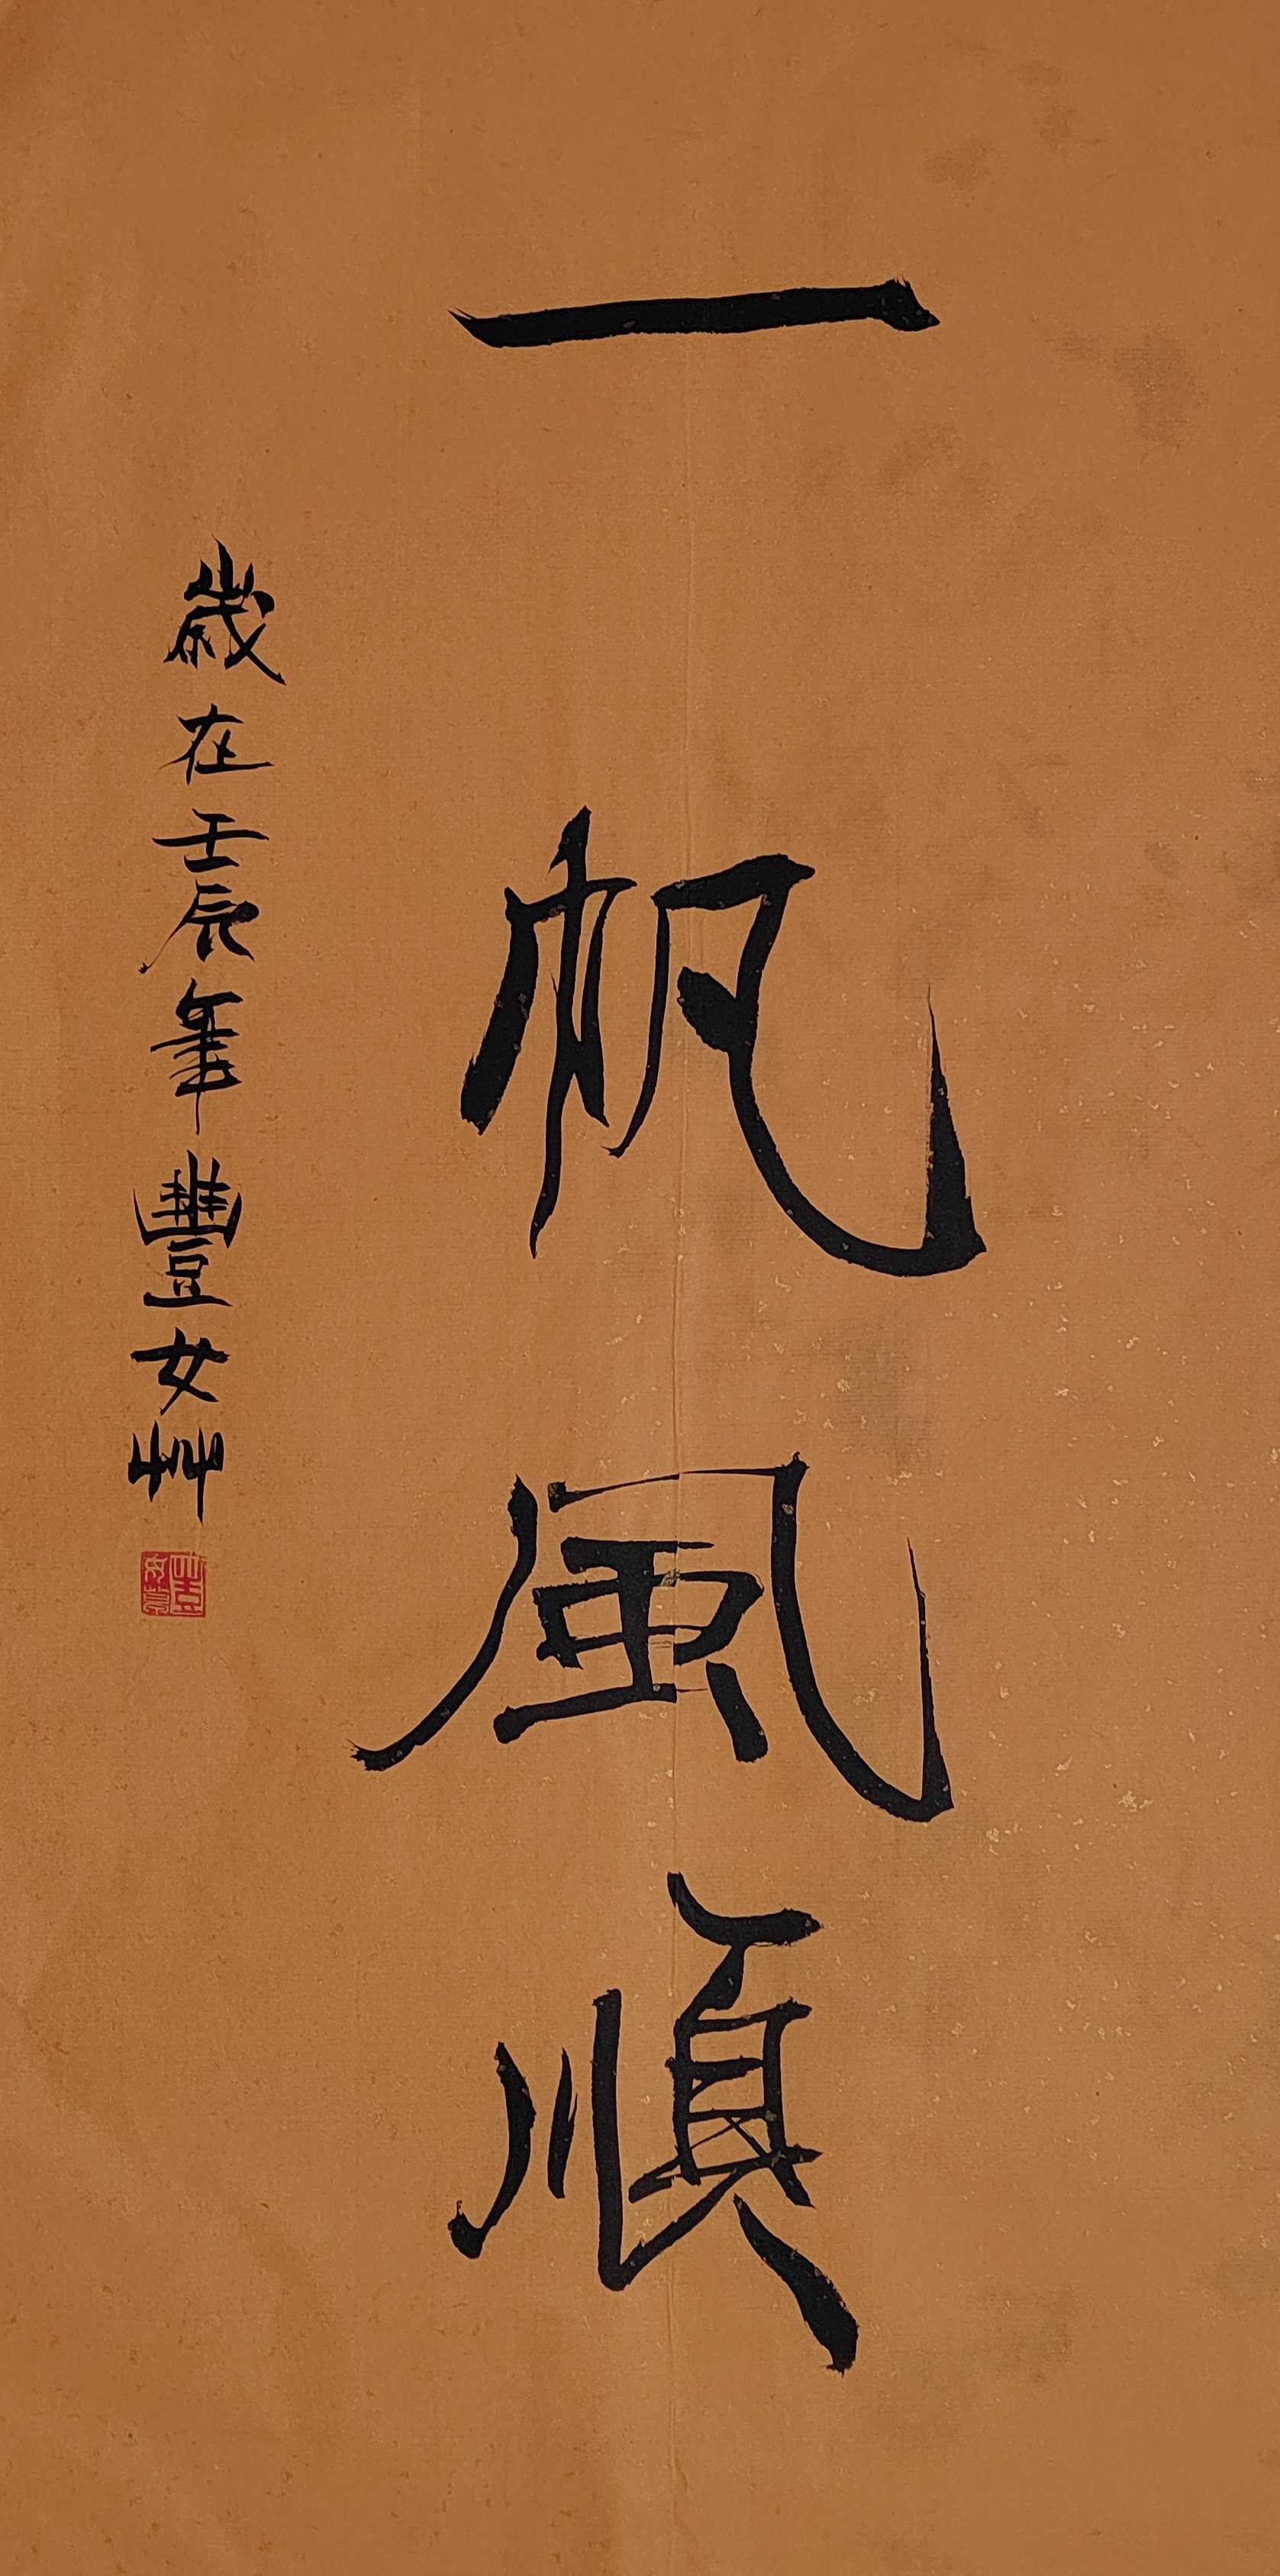 一帆風順
歲在壬辰年豐女艸